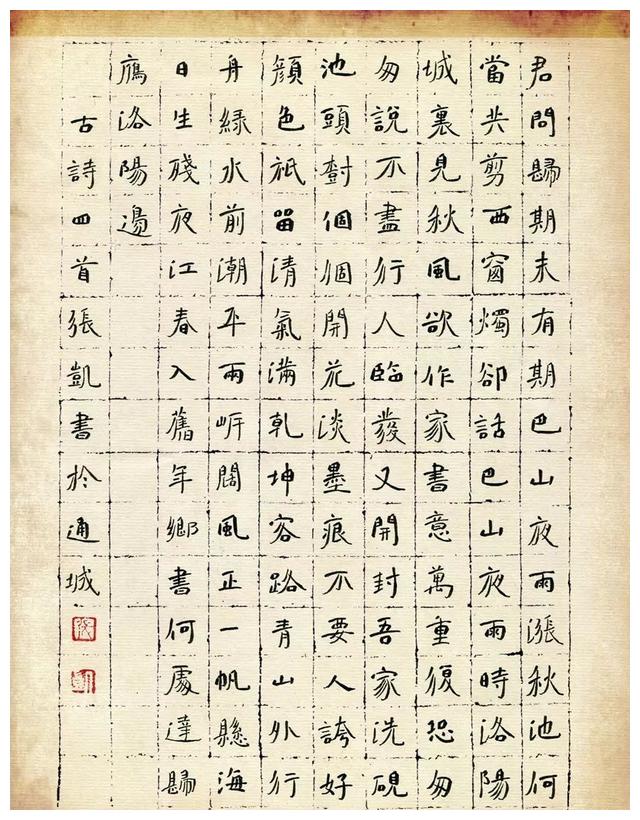 君問歸期未有期巴山夜雨漲秋池何
當共剪西窗燭卻話巴山夜雨時洛陽
城裏見秋風欲作家書意萬重復恐匆
匆說不盡行人臨發又開封吾家洗硯
池頭樹個個開花淡墨痕不要人誇好
顏色祇留清氣滿乾坤客路青山外行
舟綠水前潮平兩岸闊風正一帆懸海
日生殘夜江春入舊年鄉書何處達歸
鴈洛陽邊
古詩四首張凱書於通城